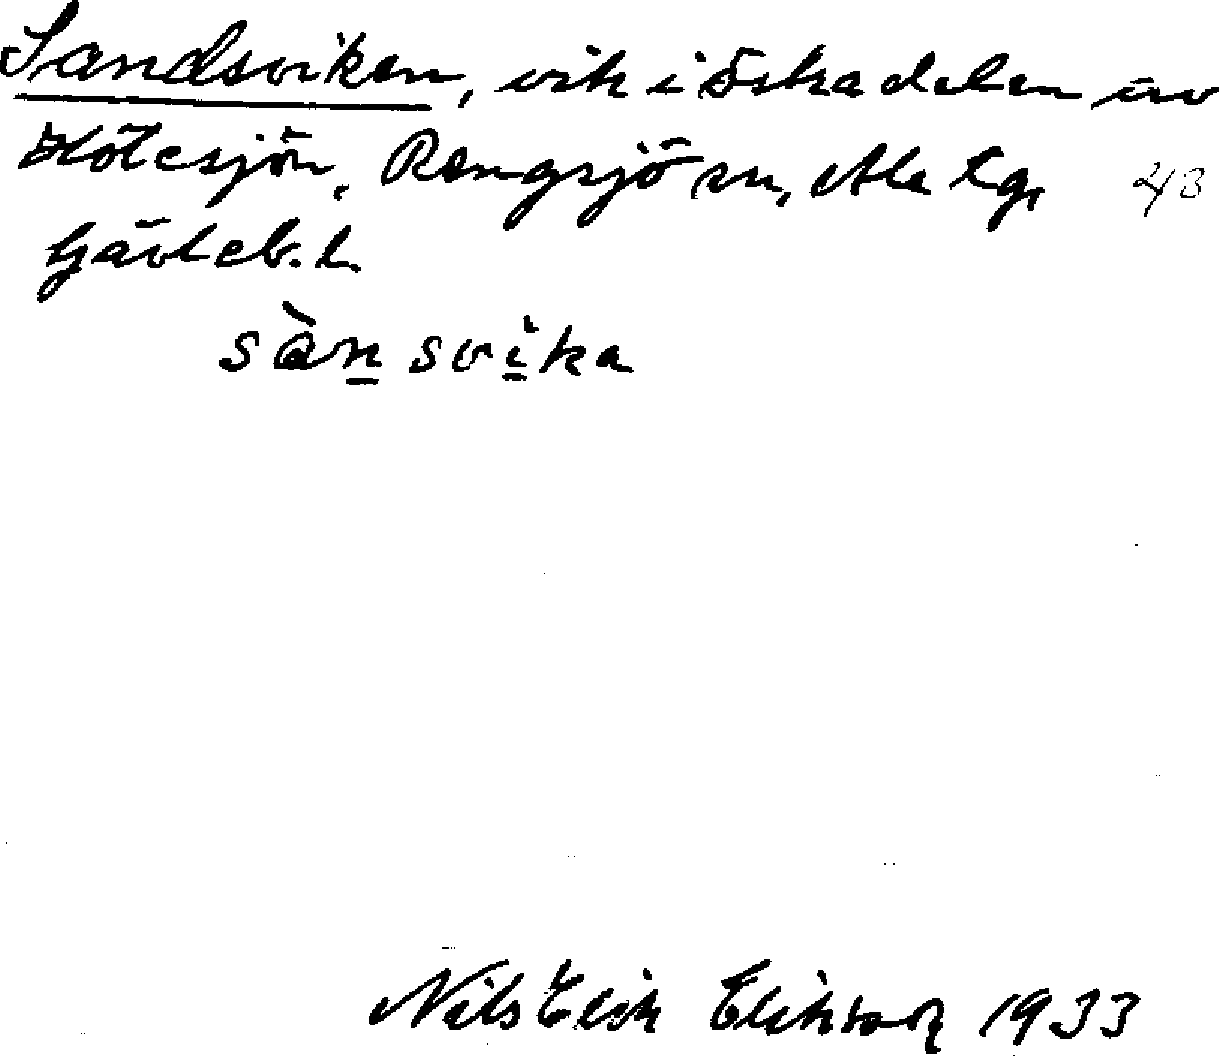 Sandsviken, vik i östra delen av
Hötesjön, Rengsjö sn, Ala tg, 43
Gävleb. l.
sàn svika
Nils Erik Erikson 1933